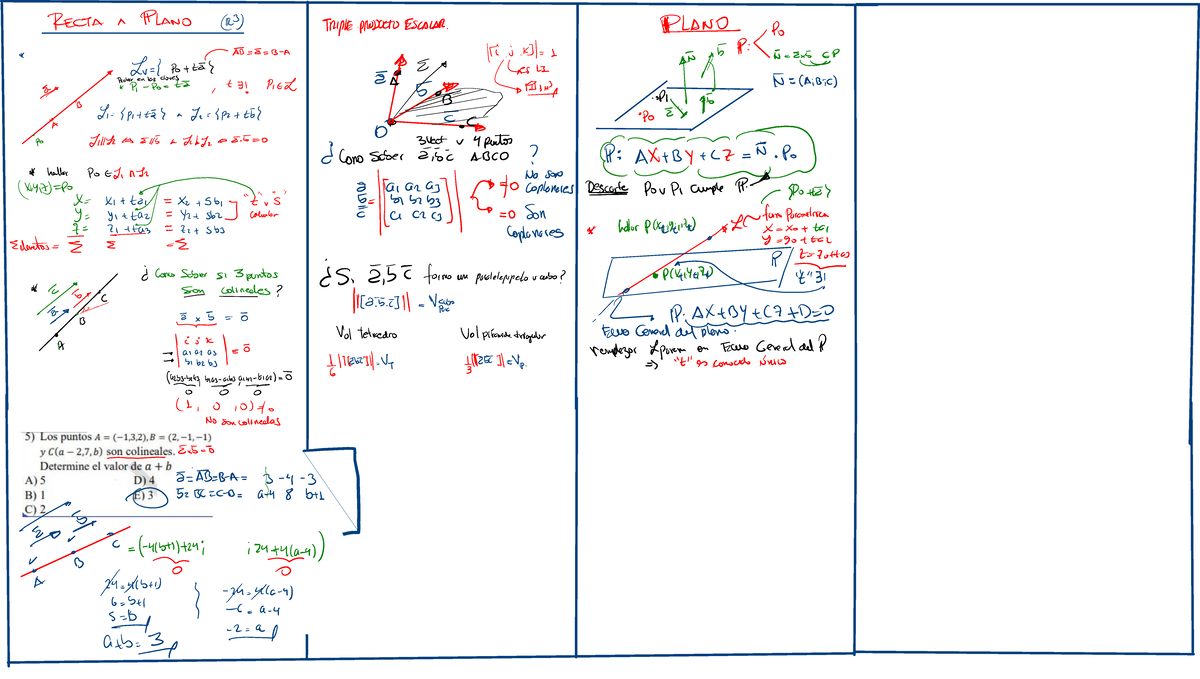 RECTA ∧ PLANO (R3)
AB = a = B-A
Lv = { P0 + ta }
* P1 - P0 = ta , t ∃! P1 ∈ L
L1 = {P1+ta} ∧ L2 = {P2+tb}
L1 // L2 ⇔ a // b ∧ L1 ⊥ L2 ⇔ a·b = 0
P0
A
B
* hallar P0 ∈ L1 ∩ L2
(x,y,z) = P0
X = X1 + ta1 = X2 + Sb1
Y = Y1 + ta2 = Y2 + Sb2
Z = Z1 + ta3 = Z2 + Sb3
"t" ∨ "S"
¿ Como Saber si 3 puntos
Son colineales ?
a × b = 0
i j k
a1 a2 a3
b1 b2 b3
= 0
0 0 0
(1, 0, 0) ≠ 0
No son colineales
A
B
C
5) Los puntos A = (−1,3,2), B = (2,−1,−1)
y C(a − 2,7,b) son colineales. a×b=0
Determine el valor de a + b
A) 5 D) 4
B) 1 E) 3
C) 2
a = AB = B-A = 3 -4 -3
b = BC = a-4 8 b+1
A
B
C
= (-4(b+1)+24 ; ; 24+4(a-4))
0 0
24 = 4(b+1)
6 = b+1
5 = b
-24 = 4(a-4)
-6 = a-4
-2 = a
a+b = 3
TRIPLE PRODUCTO ESCALAR.
|[i j k]| = 1
a A
b B
c C
O
3 Vect ∨ 4 puntos
¿ Como Saber a,b,c ABCO ?
a
b
c
=
a1 a2 a3
b1 b2 b3
c1 c2 c3
≠0 No son Coplanares
=0 Son Coplanares
¿Si a,b,c forma un paralelepipedo o cubo?
|[a.b.c]| = V cubo
Vol tetraedro
1/6 |[abc]| = VT
Vol piramide
1/3 |[abc]| = Vp.
PLANO
P: < P0
N = a×b ⊂ P
N = (A;B;C)
N
b
P1
P0
a
P: AX+BY+CZ = N . P0
Descarte P0 ∨ P1 cumple P
{P0+ta}
* hallar P(x1,y1,z1)
L forma Parametrica
X = X0 + ta1
Y = Y0 + ta2
Z = Z0 + ta3
"t" ∃!
P
P(x1,y1,z1)
P: AX+BY+CZ+D=0
Ecua General del plano.
remplazar L param en Ecua General del P
⇒ "t" es conocido único